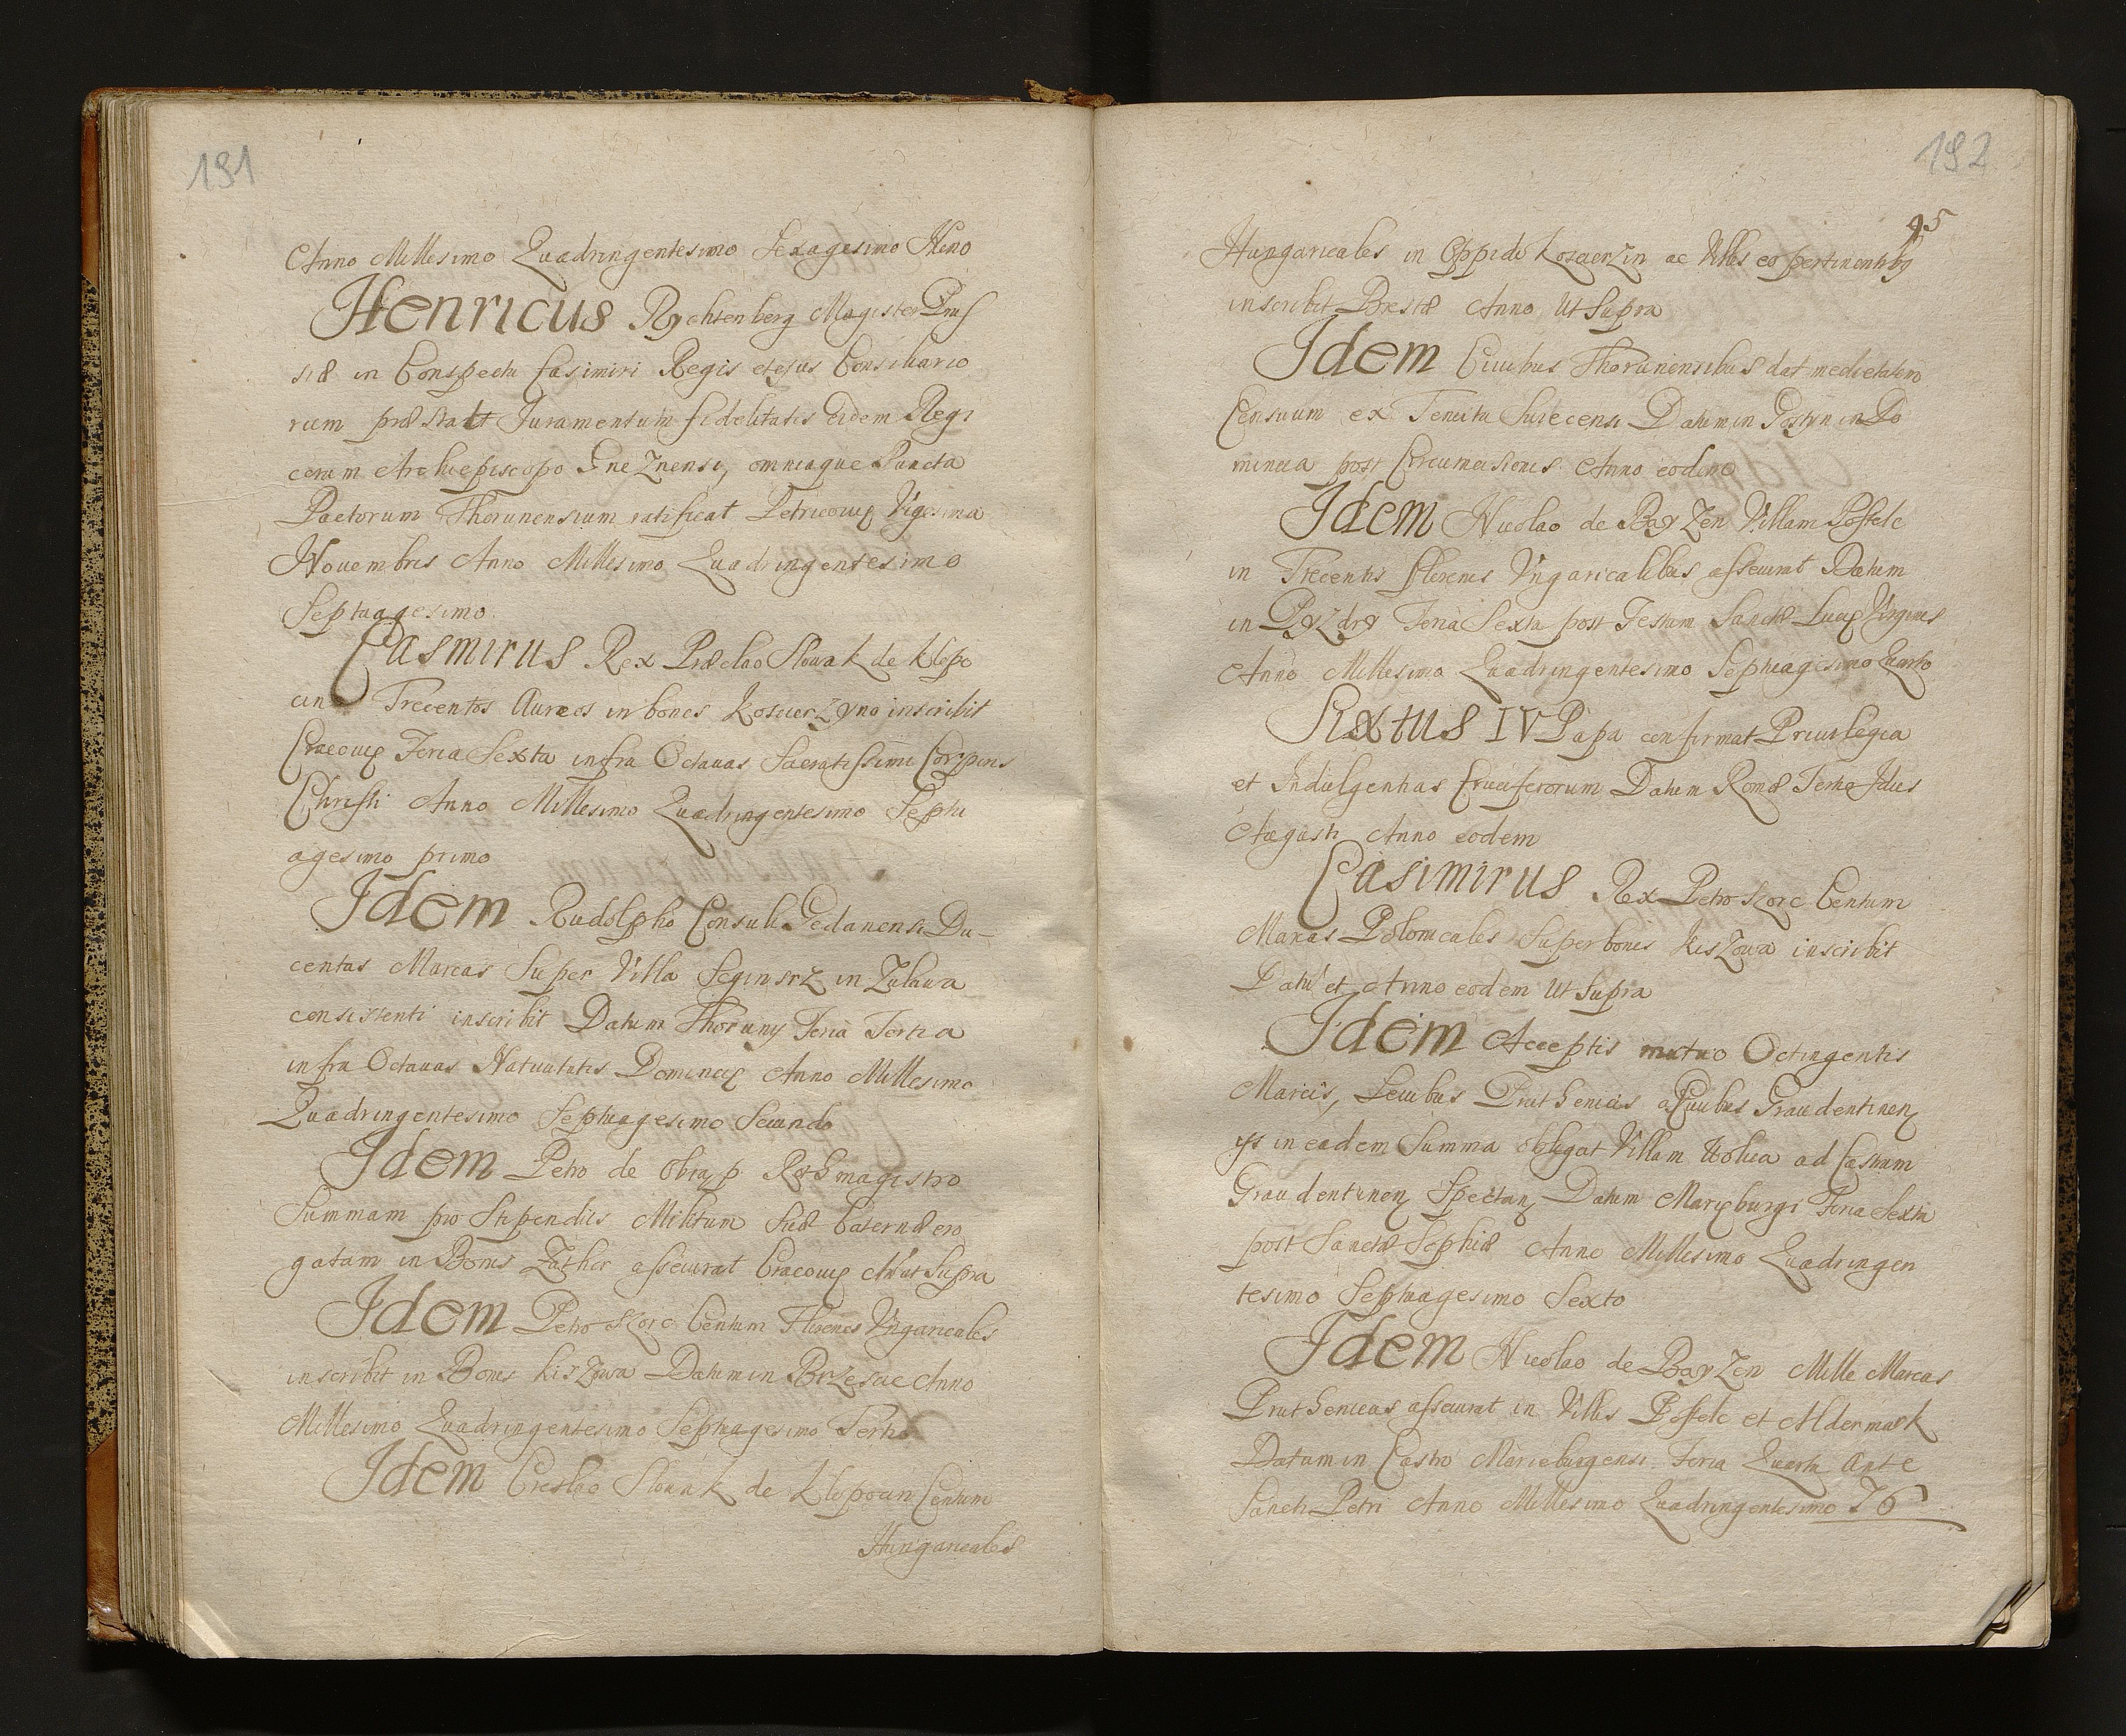 191
Anno Millesimo Quadringentesimo Sexagesimo Nono
Henricus Rychtenberg Magister Prus
siæ in Conspectu Casimiri Regis et ejus Consiliario
rum præstatt Juramentum fidelitatis eidem Regi
coram Archiepiscopo Gneznensi, omniaque Puncta
Pactorum Thorunensium ratificat Petricoviæ Vigesima
Novembris Anno Millesimo Quadringentesimo
Septuagesimo.
Casmirus Rex Præclao Slowak de Klepo
cin Trecentos Aureos in bonis Koscierzyno inscribit
Cracoviæ Feria Sexta infra Octavas Sacratissimi Corporis
Christi Anno Millesimo Quadringentesimo Septu
agesimo primo
Idem Rudolpho Consuli Gedanensi Du-
centas Marcas Super Villa Seginsrz in Zulawa
consistenti inscribit Datum Thoruny Feria Tertia
infra Octavas Nativitatis Dominicæ Anno Millesimo
Quadringentesimo Septuagesimo Secundo
Idem Petro de Obrazp Rothmagistro
Summam pro Stipendiis Militum Suæ Caternæ ero
gatam in Bonis Zather assecurat Cracoviæ Aõ ut Supra
Idem Petro Skorc Centum Florenos Vngaricales
inscribit in Bonis Kiszowa Datum in Brzescie Anno
Millesimo Quadringentesimo Septuagesimo Tertio
Idem Creslao Slowak de Klopocin Centum
Hungaricales
192
95
Hungaricales in Oppido Koscierzin ac Villis eo pertinentibus
inscribit Brestæ Anno Ut Supra
Idem Civibus Thorunensibus dat medietatem
Censuum ex Tenuta Swiecensi Datum in Gostyn in Do
minica post Circumcisionis Anno eodem
Idem Nicolao de Bayzen Villam Postelc
in Trecentis florenis Vngaricalibus assecurat Datum
in Pyzdry Feria Sexta post Festum Sanctæ Luciæ Virginis
Anno Millesimo Quadringentesimo Septuagesimo Quarto
Sixtus IV Papa confirmat Privilegia
et Indulgentias Cruciferorum Datum Romæ Tertio Idus
Augusti Anno eodem
Casimirus Rex Petro Skorc Centum
Marcas Polonicales Super bonis Kiszowa inscribit
Datũ et Anno eodem Ut Supra
Idem Acceptis mutuo Octingentis
Marcis, Levibus Pruthenicis a Civibus Graudentinen
ijs in eadem Summa obligat Villam Wolica ad Castrum
Graudentinen Spectan Datum Mariæburgi Feria Sexta
post Sanctæ Sophiæ Anno Millesimo Quadringen
tesimo Septuagesimo Sexto
Idem Nicolao de Bayzen Mille Marcas
Pruthenicas assecurat in Villis Postelc et Aldermark
Datum in Castro Marieburgensi Feria Quarta Ante
Sancti Petri Anno Millesimo Quadringentesimo 76